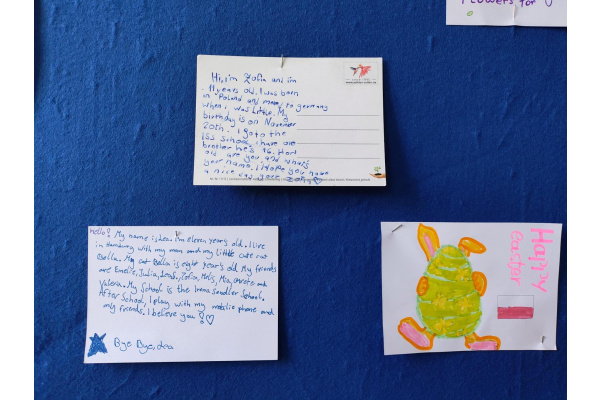 Flowers for
Hi, I'm Zofia and im
11 years old. I was born
in Poland and moved to germany
when i was little. My
birthday is on November
20th. I go to the
ISS school, i have one
brother he's 16. How
old are you and what's
your name. I Hope you have
a nice day your Zofia
Hello! My name is Lea. I'm eleven years old. I live
in Hamburg with my mom and my little cute cat
Bella. My cat Bella is eight years old. My friends
are Emelie, Julia, Zofia, Mia,
Valeria. My School is the Irena Sendler School.
After School, I play with my mobile phone and
my friends. I believe you!
Bye Bye, Lea
Happy
easter